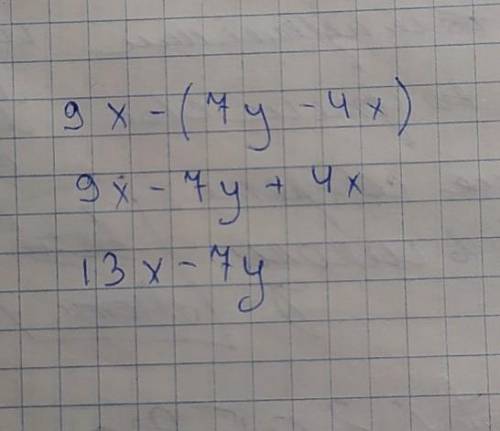 9x - (7y - 4x)
9x - 7y + 4x
13x - 7y